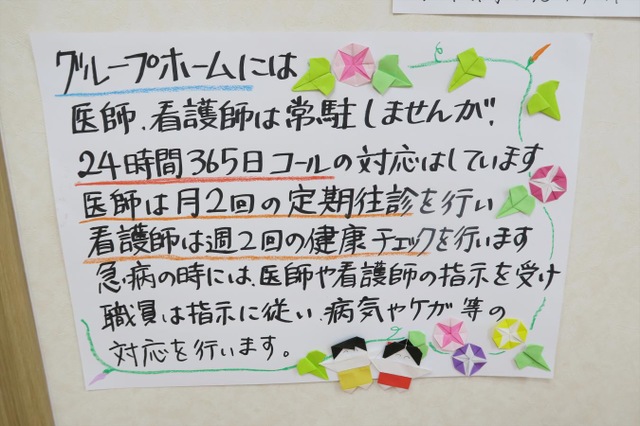 グループホームには
医師、看護師は常駐しませんが、
24時間365日コールの対応はしています
医師は月2回の定期往診を行い
看護師は週2回の健康チェックを行います
急病の時には、医師や看護師の指示を受け
職員は指示に従い、病気やケガ等の
対応を行います。